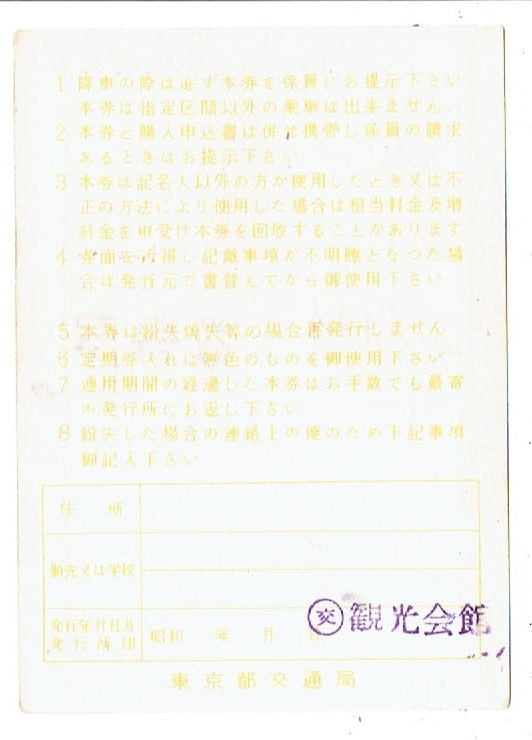 1 降車の際は必ず本券を係員にお提示下さい
本券は指定区間以外の乗車は出来ません
2 本券と購入申込書は併せ携帯し係員の請求
あるときはお提示下さい
3 本券は記名人以外の方が使用したとき又は不
正の方法により使用した場合は相当料金及増
料金を申受け本券を回收することがあります
4 券面を汚損し記載事項が不明瞭となつた場
合は発行元で書替えてから御使用下さい
5 本券は紛失焼失等の場合再発行しません
6 定期券入れは無色のものを御使用下さい
7 通用期間の経過した本券はお手数でも最寄
の発行所にお返し下さい
8 紛失した場合の連絡上の便のため下記事項
御記入下さい
住所
勤先又は学校
発行年月日及
発行所印
昭和 年 月 日
㊋観光会館
東京都交通局